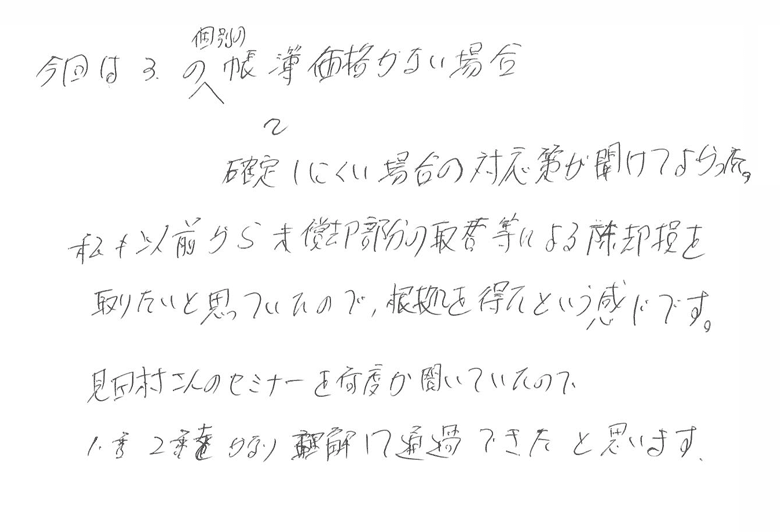 今回は3.の個別の帳簿価格がない場合
〜
確定しにくい場合の対応策が聞けてよかった。
私も以前から未償却部分の取替等による除却損を
取りたいと思っていたので、根拠を得たという感じです。
見田村さんのセミナーを何度か聞いていたので
1.章 2章をかなり理解して通過できたと思います.